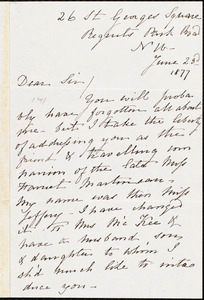 26 St. Georges Square
Regents Park Road
N.W.
June 23d
1877
Dear Sir/
You will proba-
bly have forgotten all about
me - but I take the liberty
of addressing you as the
friend & travelling com-
panion of the late Miss
Harriet Martineau,
My name was then Miss
I have changed
it to Mrs Mc Kee &
have a husband, son,
& daughter to whom I
shd. much like to intro
duce you -